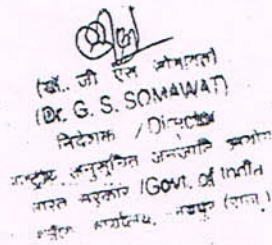 (डॉ. जी एस सोमावत)
(Dr. G. S. SOMAWAT)
निदेशक / Director
राष्ट्रीय अनुसूचित जनजाति आयोग
भारत सरकार / Govt. of India
कार्यालय, जयपुर (राज.)